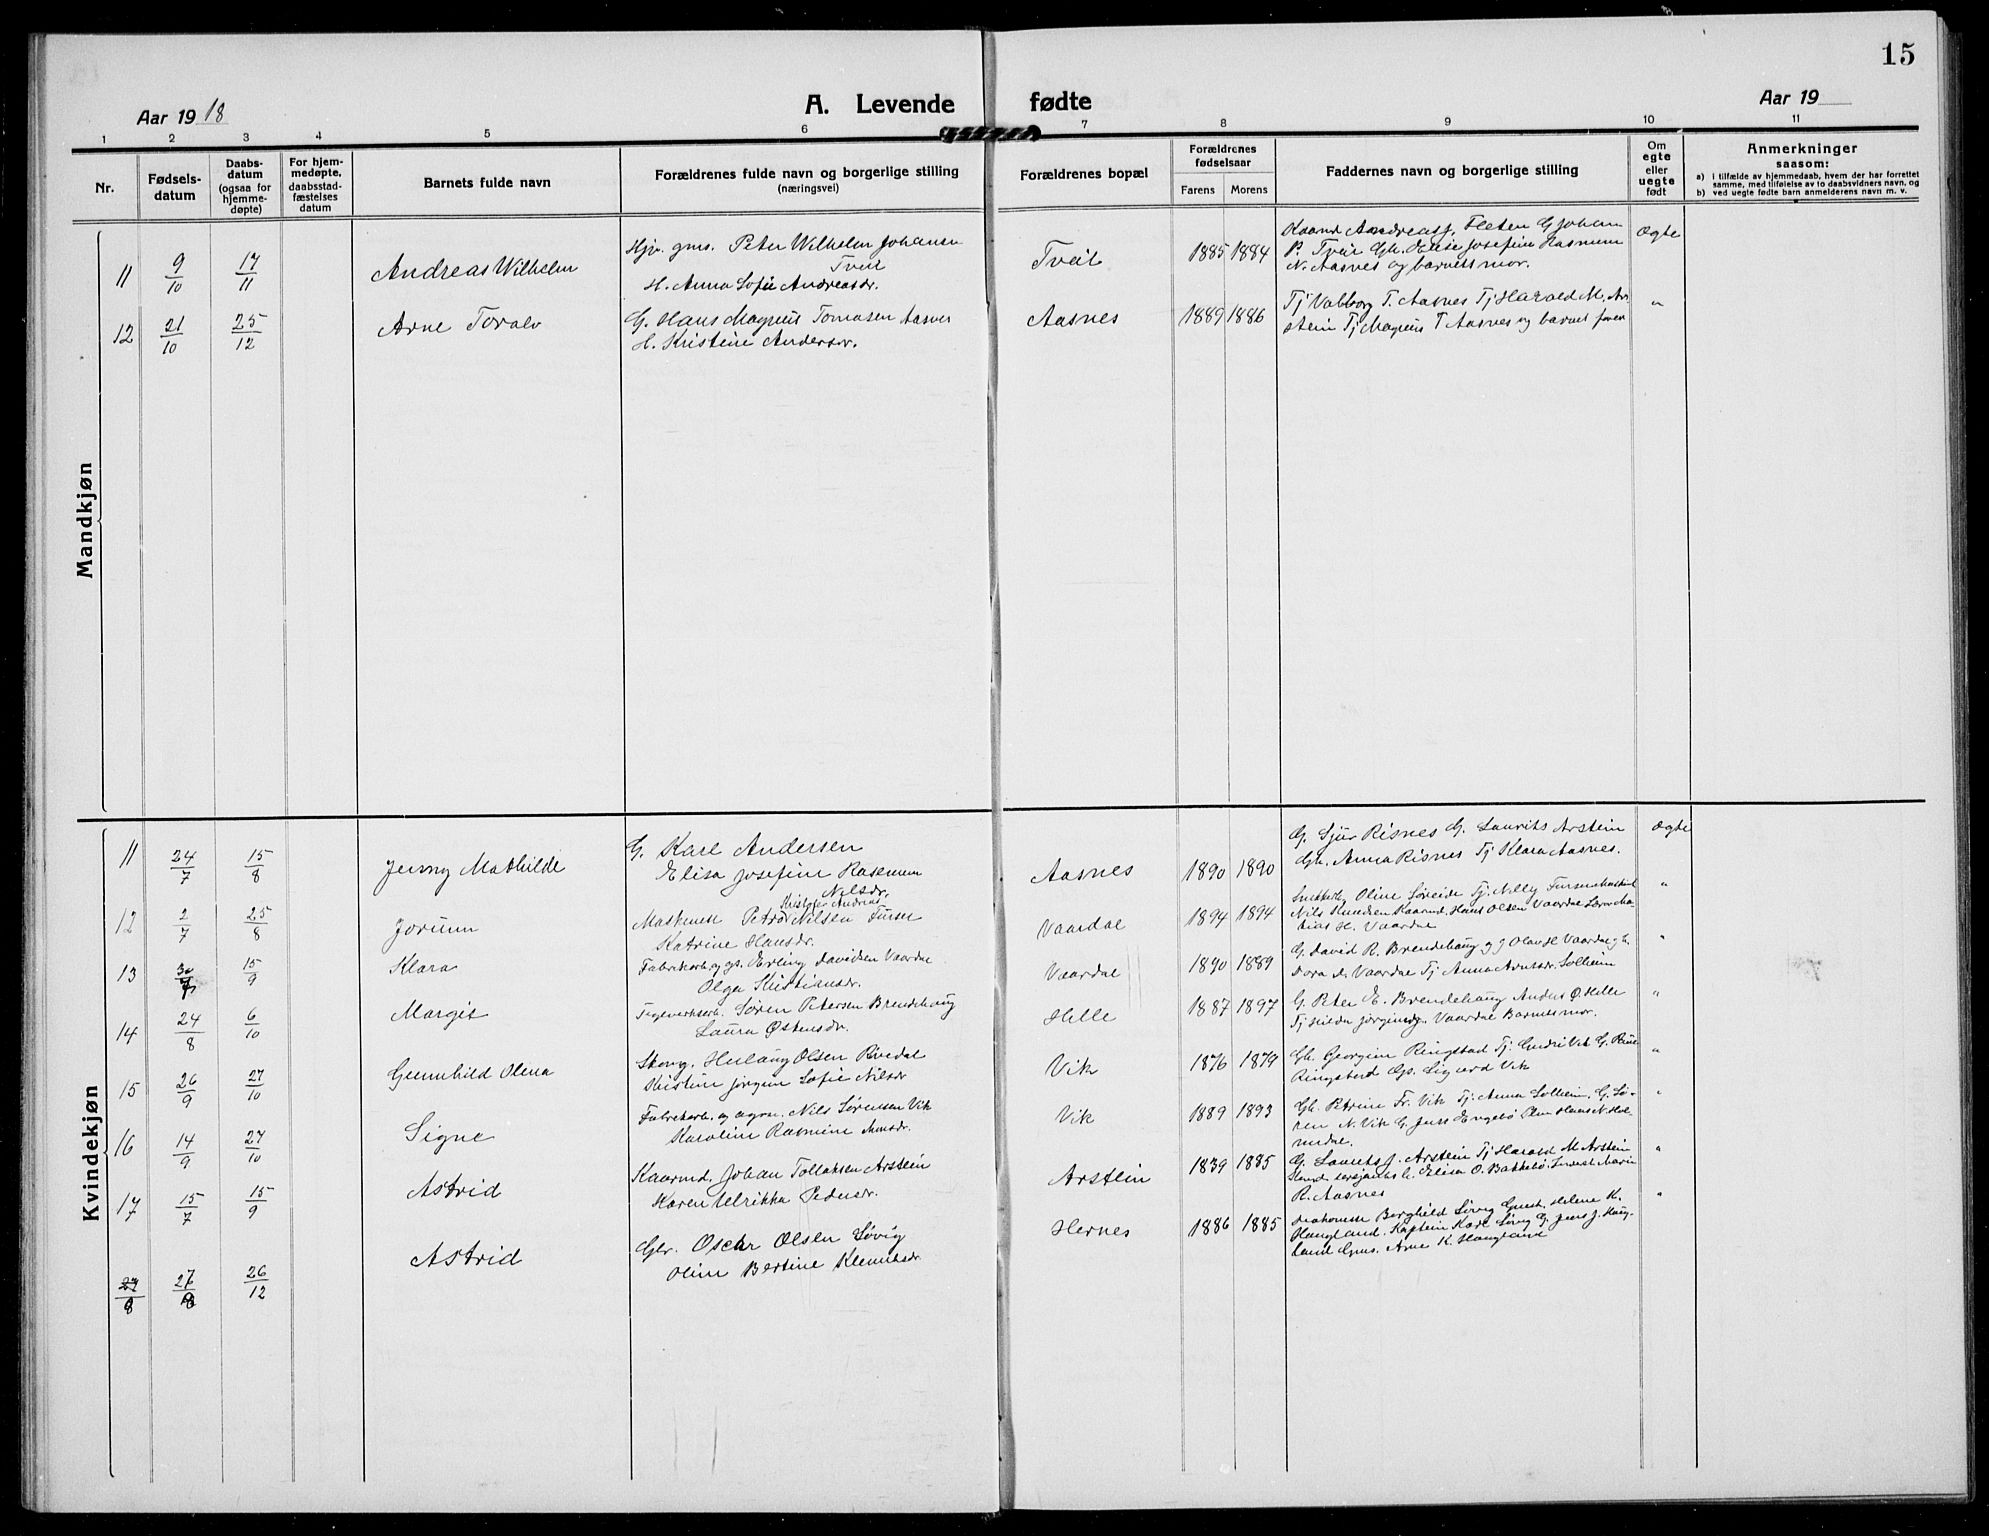 15
Aar 1918
A. Levende fødte
Aar 19
1 2 3 4 5 6 7 8 9 10 11
Nr.
Fødsels-
datum
Daabs-
datum
(ogsaa for
hjemme-
døpte)
For hjem-
medøpte,
daabsstad-
fæstelses
datum
Barnets fulde navn
Forældrenes fulde navn og borgerlige stilling
(næringsvei)
Forældrenes bopæl
Forældrenes
fødselsaar
Farens Morens
Faddernes navn og borgerlige stilling
Om
egte
eller
uegte
født
Anmerkninger
saasom:
a) i tilfælde av hjemmedaab, hvem der har forrettet
samme, med tilføielse av to daabsvidners navn, og
b) ved uegte fødte barn anmelderens navn m. v.
Mandkjøn
11 9/10 17/11 Andreas Wilhelm
Peter Wilhelm Johansen
Tveit
H. Anna Sofie Andreasdr.
Tveit 1885 1884
Andreas J. Fleten G Johan
P. Tveit Gh. Elise Josefine Rasmum
N. Aasnes og barnets mor.
Ægte
12 21/10 25/12 Arne Toralv
G. Hans Magnus Tomasen Aasnes
H. Kristine Andersdr.
Aasnes 1889 1886
Tj Valborg T. Aasnes Tj Harald M. Ar-
stein Tj Magnus T Aasnes og barnets faren
"
Kvindekjøn
11 24/7 15/8 Jenny Mathilde
G. Karl Andersen
Elisa Josefine Rasmum
Nilsdr.
Aasnes 1890 1890
G. Sjur Risnes G. Laurits Arstein
Gh. Anna Risnes Tj Klara Aasnes.
Ægte
12 2/7 25/8 Jorunn
Kristofer Andreas
Maskinist Petra Nilsen
Katrine Hansdr.
Vaardal 1894 1894
Oline Søreide Tj. Nelly
Nils Knudsen Kaarmd. Hans Olsen Vaardal
H. Vaardal
"
13 30/7 15/9 Klara
Fabrikarb. og gs. Erling Davidsen Vaardal
Olga Kristiansdr.
Vaardal 1890 1889
G. David R. Brendehaug og G Olav H Vaardal gh.
Dora D. Vaardal Tj Anna Solheim
"
14 24/8 6/10 Margit
Teglverksarb. Søren Petersen Brendehaug
Laura Østensdr.
Helle 1887 1897
G. Peter E. Brendehaug Anders Ø. Helle
Tj Hilda Vaardal Barnets mor.
"
15 26/9 27/10 Gunnhild Olena
Skom. Herlaug Olsen Rivedal
Kristine Jørgine Sofie Nilsdr
Vik 1876 1879
Gh. Georgine Ringstad Tj. Gudri Vik G.
Ringstad Gs. Sigurd Vik
"
16 14/9 27/10 Signe
Fabrikarb. og agnr. Nils Sørensen Vik
Karoline Rasmine Amsdr.
Vik 1889 1893
Gh. Petrine Fr. Vik Tj. Anna Solheim. G. Sø-
ren N. Vik G. Jens Engebø Hans N. Hol-
medal.
"
17 15/7 15/9 Astrid
Kaarmd. Johan Tollaksen Arstein
Karen Ulrikka Pedersdr.
Arstein 1839 1885
G. Laurits J. Arstein Tj Harald M Arstein
Elisa O. Bakkebø
R. Aasnes
"
27/8 27/8 26/12 Astrid
Gbr. Oscar Olsen Løvig
Oline Bertine
Hernes 1886 1885
Berghild Løvig Helene K.
Haugland. Kaptein Karl Løvig G. Jens J. Haug-
land Gms. Arne K. Haugland
"